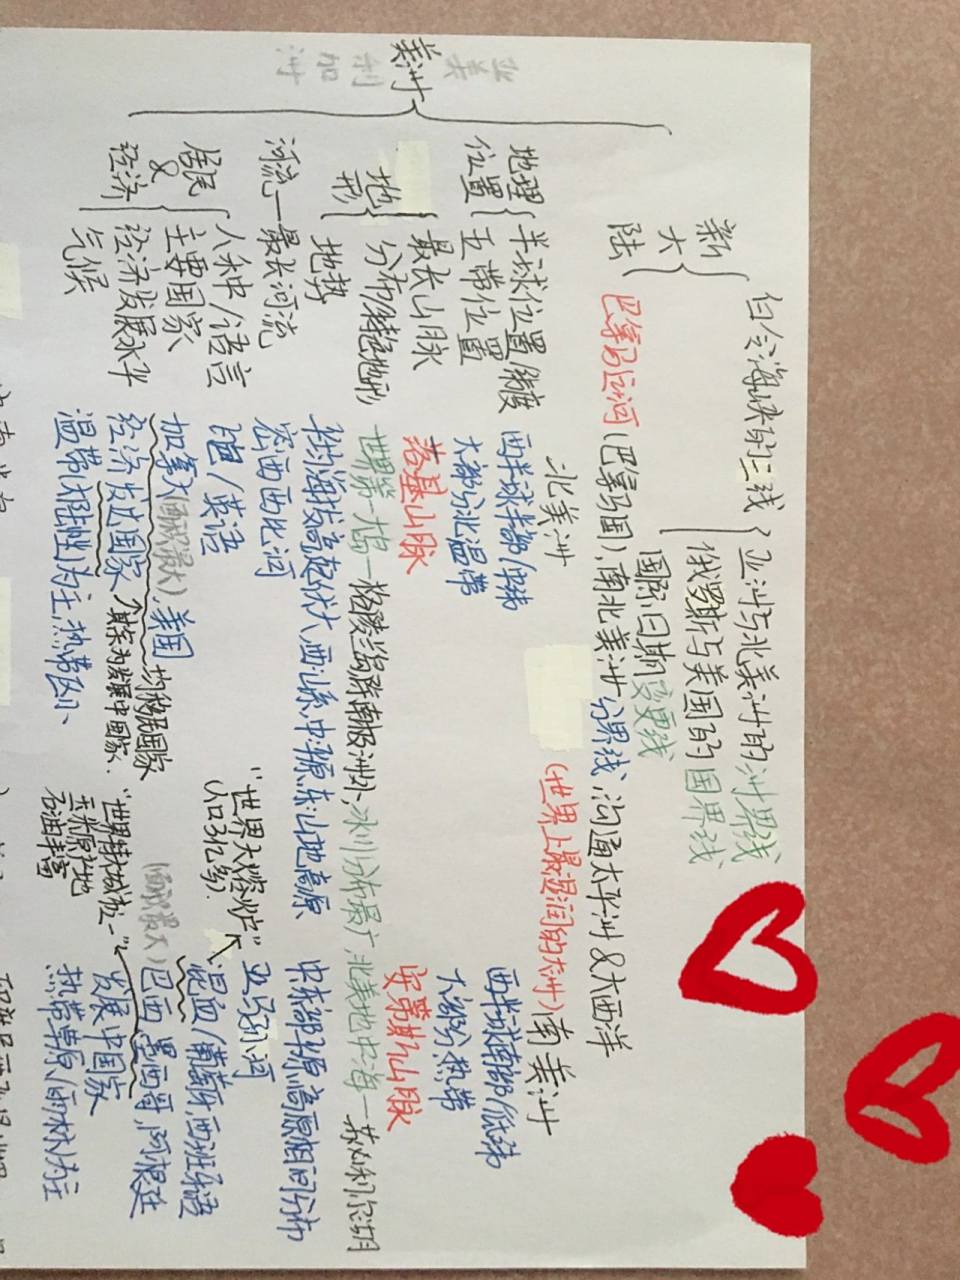 新大陆
白令海峡的三线
亚洲与北美洲的洲界线
俄罗斯与美国的国界线
国际日期变更线
巴拿马运河(巴拿马国),南北美洲分界线,沟通太平洋&大西洋
美洲
亚美利加洲
北美洲
(世界上最湿润的大洲)南美洲
地理位置
半球位置/纬度
西半球北部/中纬
西半球南部/低纬
五带位置
大部分北温带
大部分热带
地形
最长山脉
落基山脉
安第斯山脉
分布/特殊地形
世界第一大岛—格陵兰岛,除南极洲外,冰川分布最广,北美地中海—苏必利尔湖
地势
中东部平原,高原相间分布
河流—最长河流
密西西比河
亚马孙河
居民&经济
人种/语言
/英语
"世界大熔炉"
混血/葡萄牙,西班牙语
主要国家
加拿大(面积最大),美国
均移民国家
(面积最大)巴西,墨西哥,阿根廷
经济发展水平
经济发达国家
其余为发展中国家.
发展中国家
玉米原产地
石油丰富
气候
温带大陆性为主,热带少、
热带草原/雨林为主